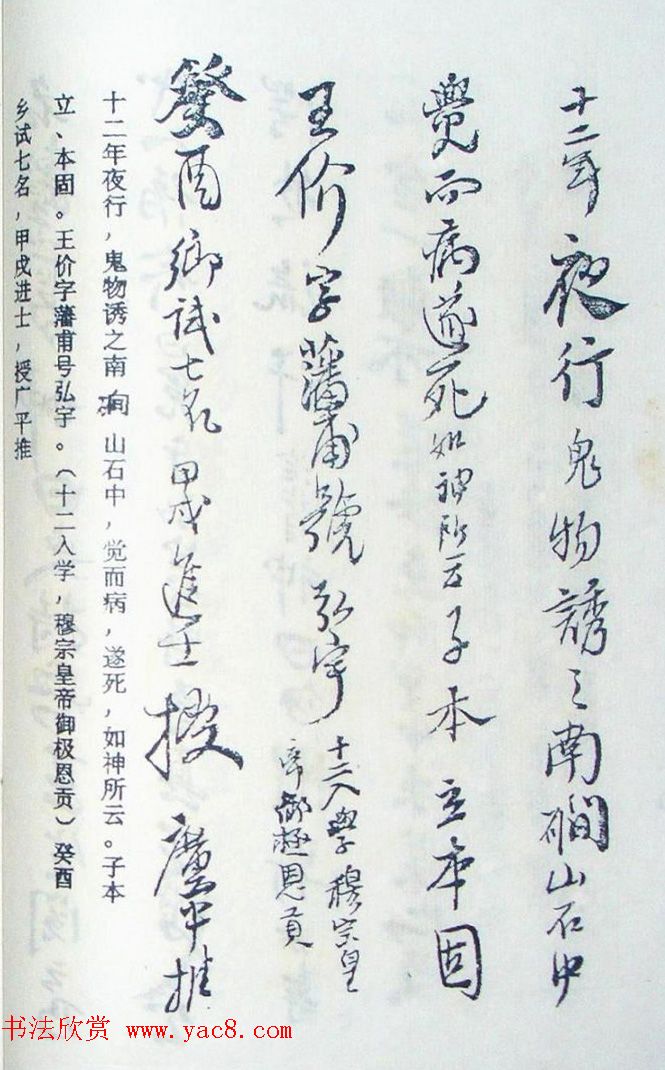 十二年夜行鬼物誘之南磵山石中
覺而病遂死如神所云子本立本固
王价字藩甫號弘宇十二入學穆宗皇
帝御極恩貢
癸酉鄉試七名甲戌進士授廣平推
十二年夜行，鬼物诱之南磵山石中，觉而病，遂死，如神所云。子本
立、本固。王价字藩甫号弘宇。（十二入学，穆宗皇帝御极恩贡）癸酉
乡试七名，甲戌进士，授广平推
书法欣赏 www.yac8.com